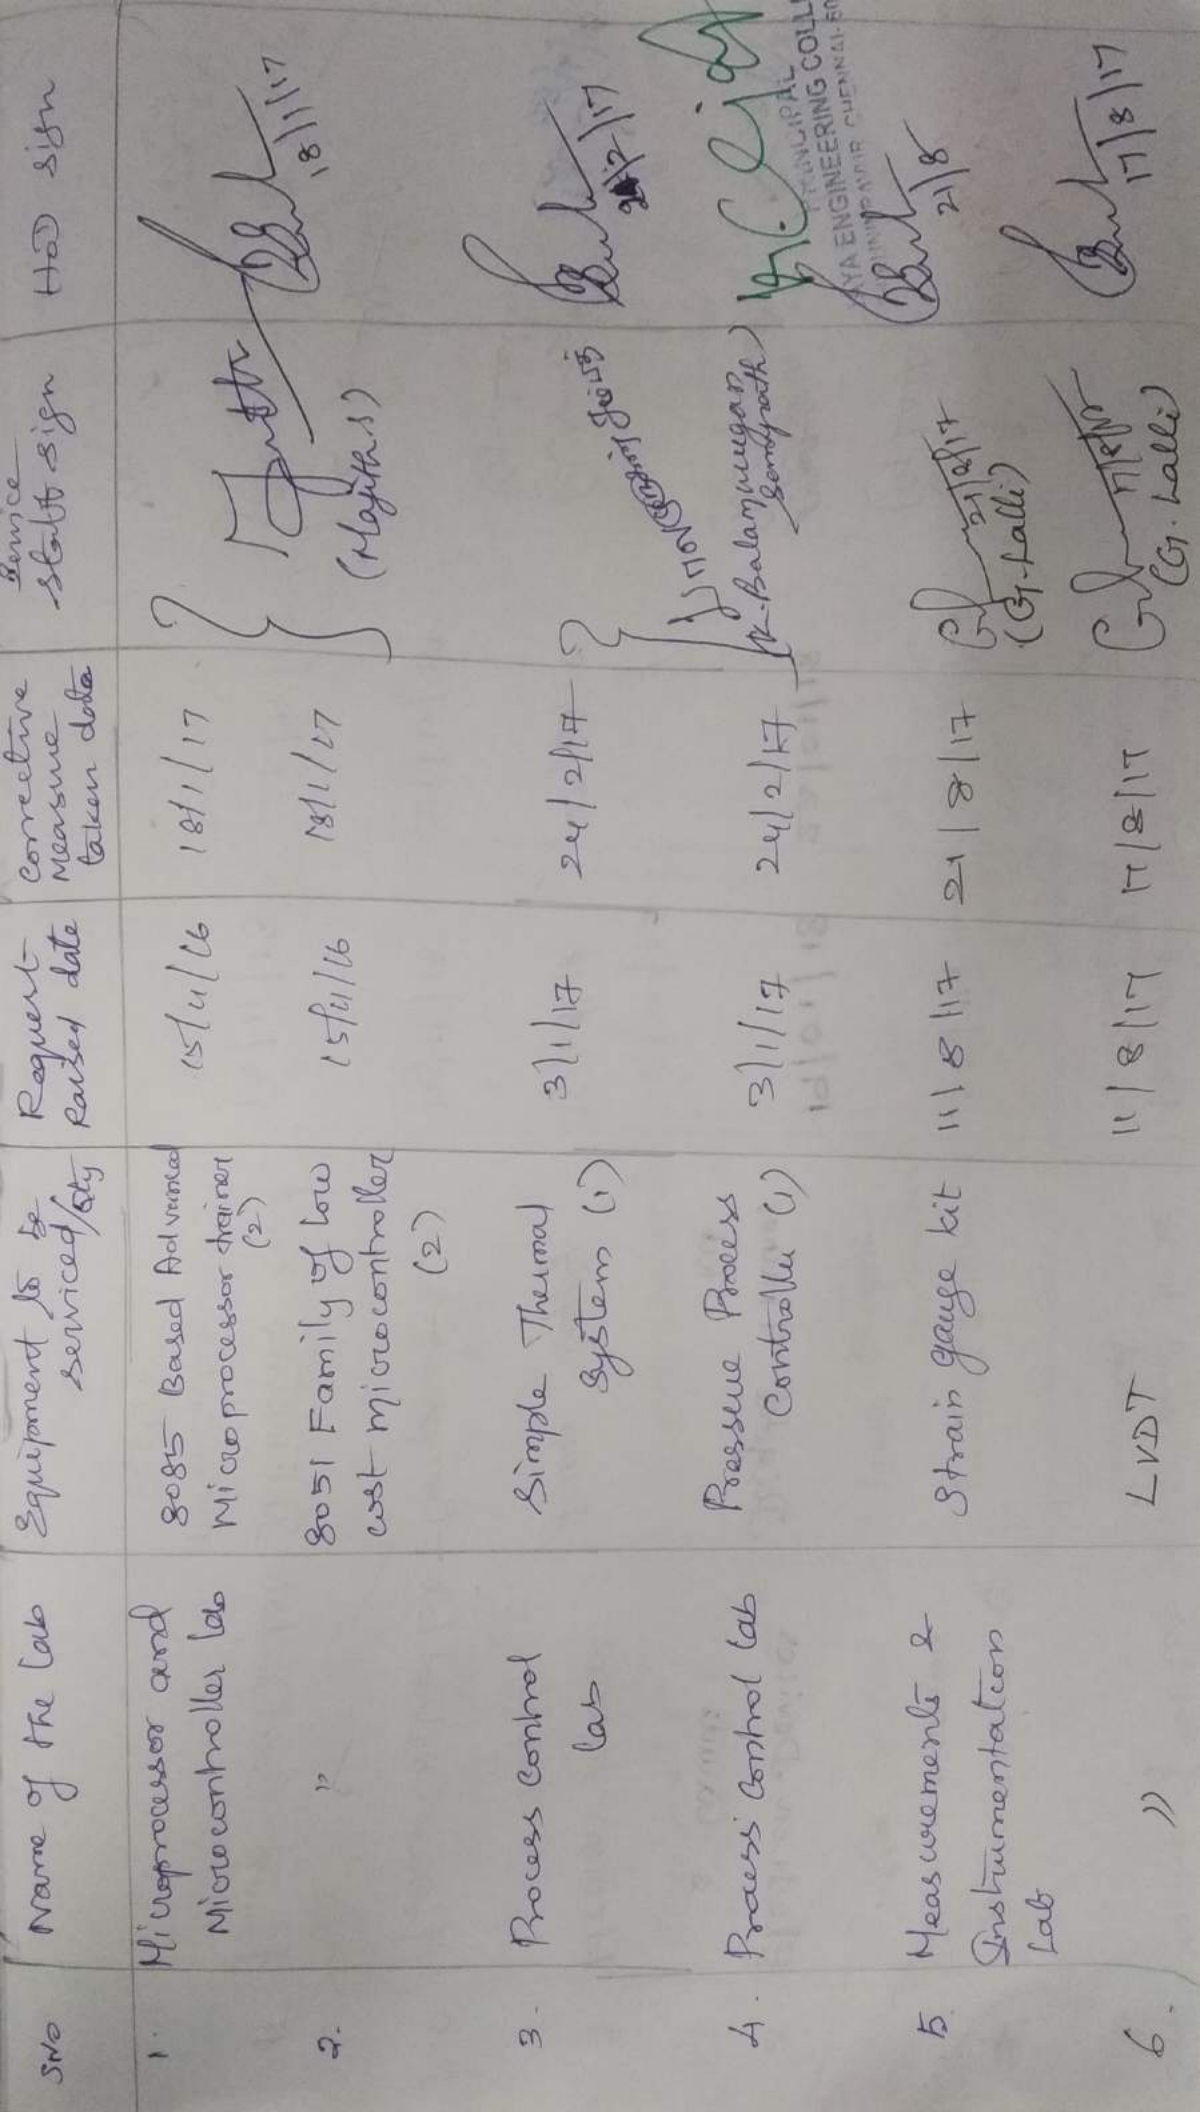 SNo
Name of the Lab
Equipment to be
serviced/Qty
Request
Raised date
Corrective
Measure
taken date
Service
Staff sign
HOD sign
1.
Microprocessor and
Microcontroller lab
8085 Based Advanced
Microprocessor trainer
(2)
15/11/16
18/1/17
(Majitha.S)
18/1/17
2.
"
8051 Family of low
cost microcontroller
(2)
15/11/16
18/1/17
3.
Process Control
Lab
Simple Thermal
System (1)
3/1/17
24/2/17
4.
Process Control Lab
Pressure Process
Controller (1)
3/1/17
24/2/17
PRINCIPAL
YA ENGINEERING COLL
5.
Measurements &
Instrumentation
Lab
Strain gauge kit
11/8/17
21/8/17
21/8/17
(G. Lalli)
21/8
6.
"
LVDT
11/8/17
17/8/17
17/8/17
(G. Lalli)
17/8/17